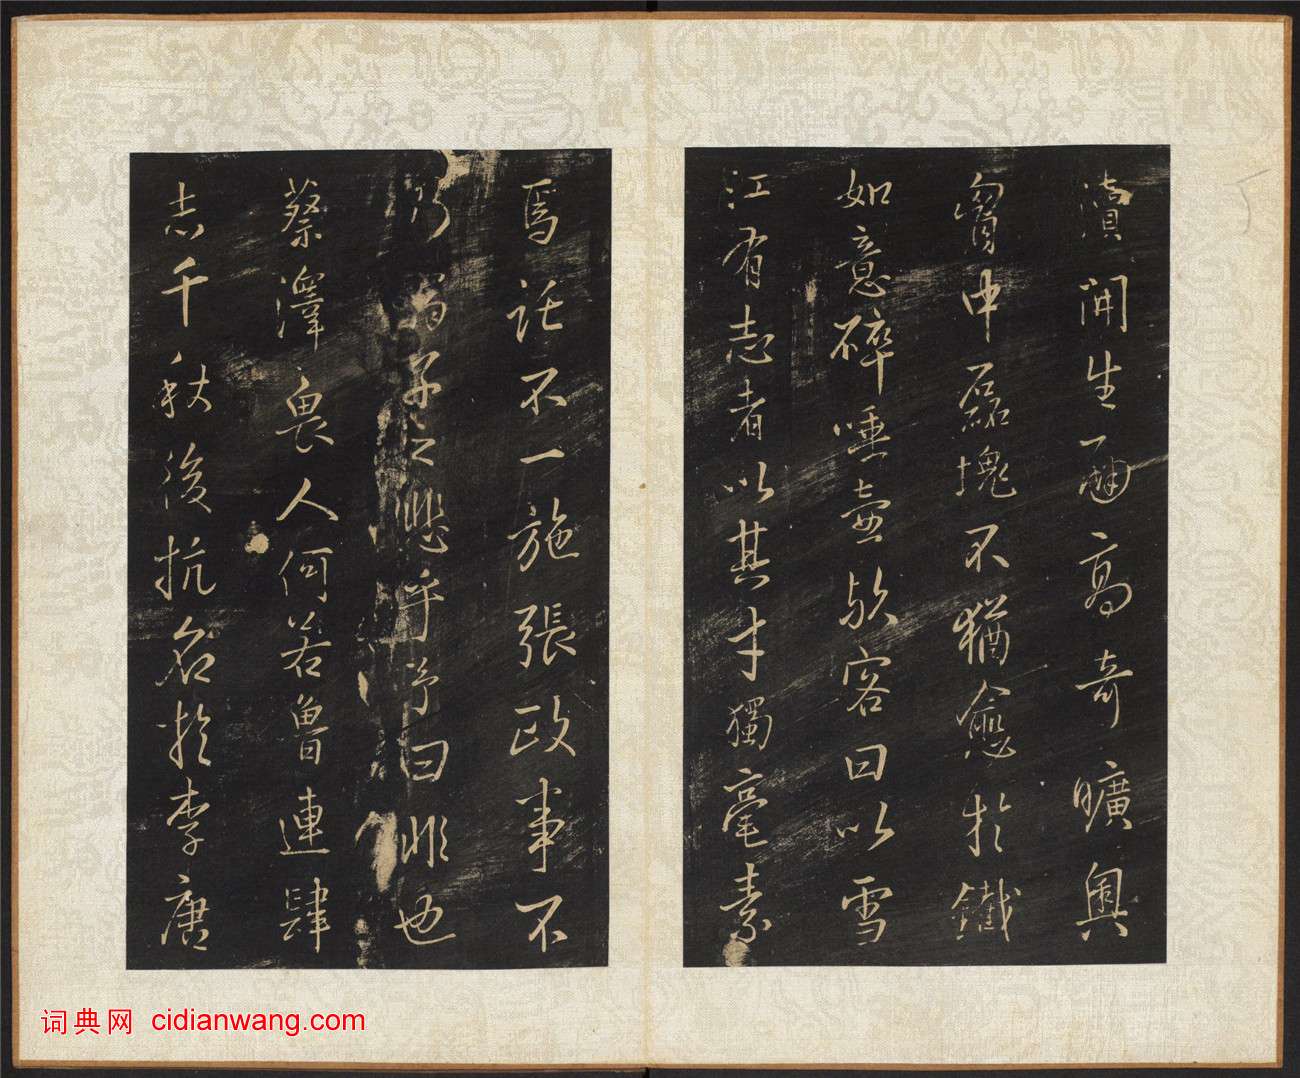 濆開生面高奇曠奧
胷中磊塊不猶愈於鐵
如意碎唾壺欤客曰以雪
江有志者以其才獨毫素
焉託不一施張政事不
乃爲子之悲乎予曰非也
蔡澤衆人何若魯連肆
志千秋後抗名於李唐
词典网 cidianwang.com